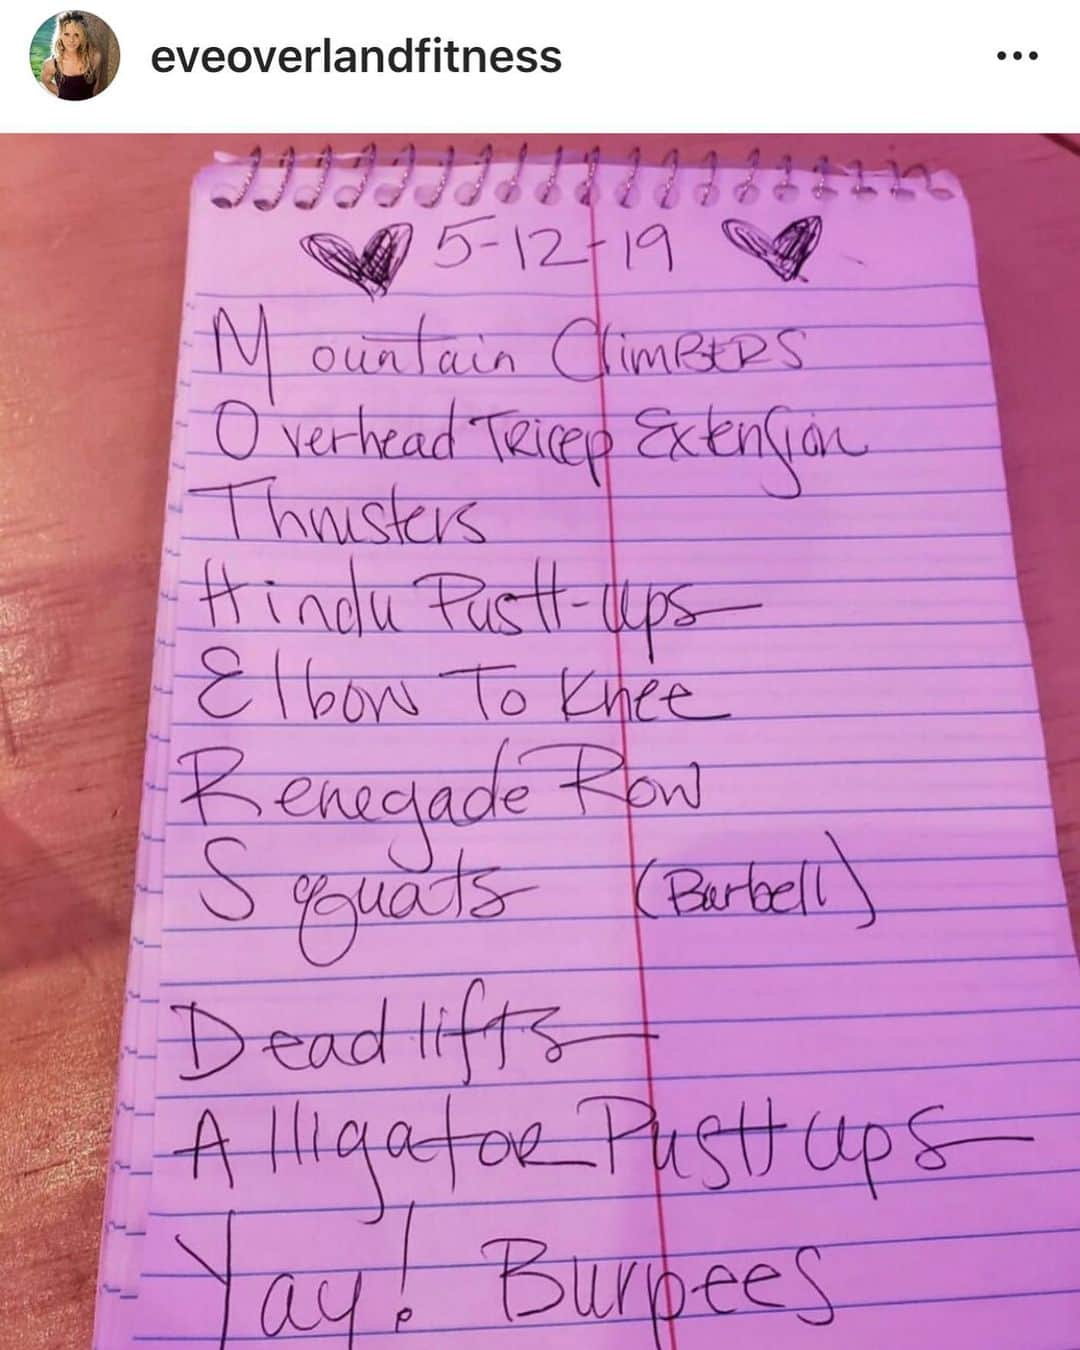 eveoverlandfitness
5-12-19
Mountain Climbers
Overhead Tricep Extension
Thrusters
Hindu Push-Ups
Elbow To Knee
Renegade Row
Squats (Barbell)
Deadlifts
Alligator Push ups
Yay! Burpees